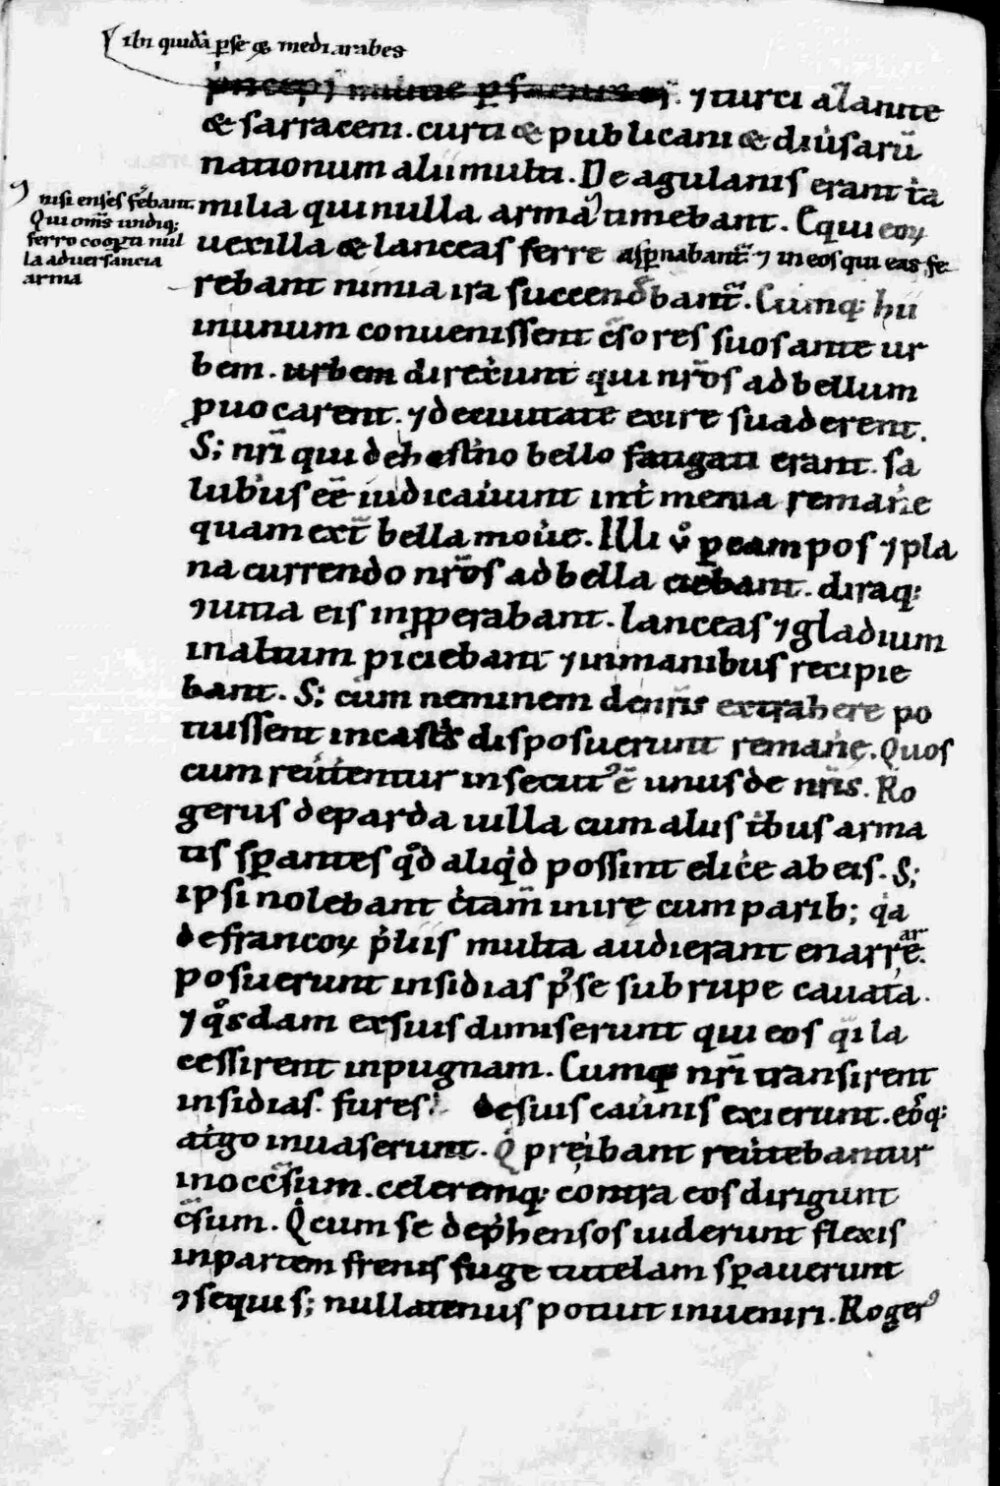 ibi quidā ꝑse & medi arabes
⁊ turci alanite
& sarraceni. curti & publicani & diu̾sarū
nationum alii multi. De agulanis erant t̾ia
milia qui nulla arma timebant.
nisi enses fe̾bant.
Qui om̄s undiq;
ferro coop̱ti nul
la aduersancia
arma
uexilla & lanceas ferre asꝑnabant̄ ⁊ in eos qui eas fe
rebant nimia ira succend̾bant̄. Cumq; hii
inunum conuenissent c̄sores suos ante ur
bem. urbem direx̾unt qui nr̄os ad bellum
ꝓuocarent. ⁊ deciuitate exire suaderent.
S; nr̄i qui deh est̾no bello fatigati erant. sa
lubi̾us ēe iudicau̾unt int̾ menia reman̾e
quam ext̄ bella mou̾e. Illi ů ꝑ campos ⁊ pla
na currendo nr̄os ad bella ciebant. diraq;
ꝯuitia eis inꝓperabant. Lanceas ⁊ gladium
inaltum piciebant ⁊ inmanibus recipie
bant. S; cum neminem denr̄is extrahere po
tuissent incast̾s disposuerunt reman̾e. Quos
cum reu̾tentur insecutꝰ ē unus de nr̄is. Ro
gerus deparda uilla cum aliis t̾bus arma
tis sꝑantes qd̊ aliqd̾ possint elic̾e ab eis. S;
ipsi nolebant c̾tam̄ inire cum parib; qa̾
defrancoꝝ p̾liis multa audierant enarrare.
posuerunt insidias pꝰse sub rupe cauata.
⁊ qo̾sdam exsuis dimiserunt qui eos q̄i la
cessirent inpugnam. Cumq; nr̄i transirent
insidias. fures desuis cau̾nis exierunt. eosq;
at̾go inuaserunt. Q̾ preibant reu̾tebantur
inocc̄sum. celeremq; contra eos dirigunt
c̄sum. Q̾ cum se dep̾hensos uiderunt flexis
inpartem frenis fuge tutelam sꝑauerunt
ꝯsequi s; nullatenus potuit inueniri. Rogerꝰ